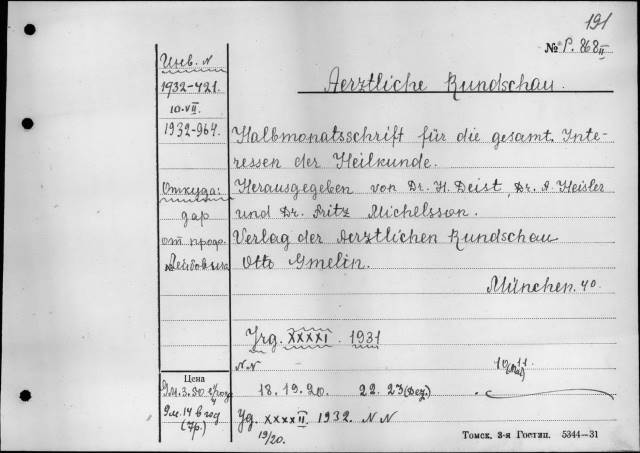 191
№ P. 868 II
Инв. N
1932-421.
10.VII.
1932-964.
Откуда:
дар
от проф.
Aerztliche Rundschau.
Halbmonatsschrift für die gesamt. Inte-
ressen der Heilkunde.
Herausgegeben von Dr. H. Deist, Dr. J. Heisler
und Dr. Fritz Michelsson.
Verlag der Aerztlichen Rundschau
Otto Gmelin.
München. 40.
Jrg. XXXXI 1931
N N
18. 19. 20. 22. 23 (Dez.)
Jg. XXXXII 1932. N N
19/20.
Цена
9м. 14 в год
(7р.)
Томск. 3-я Гостип. 5344—31